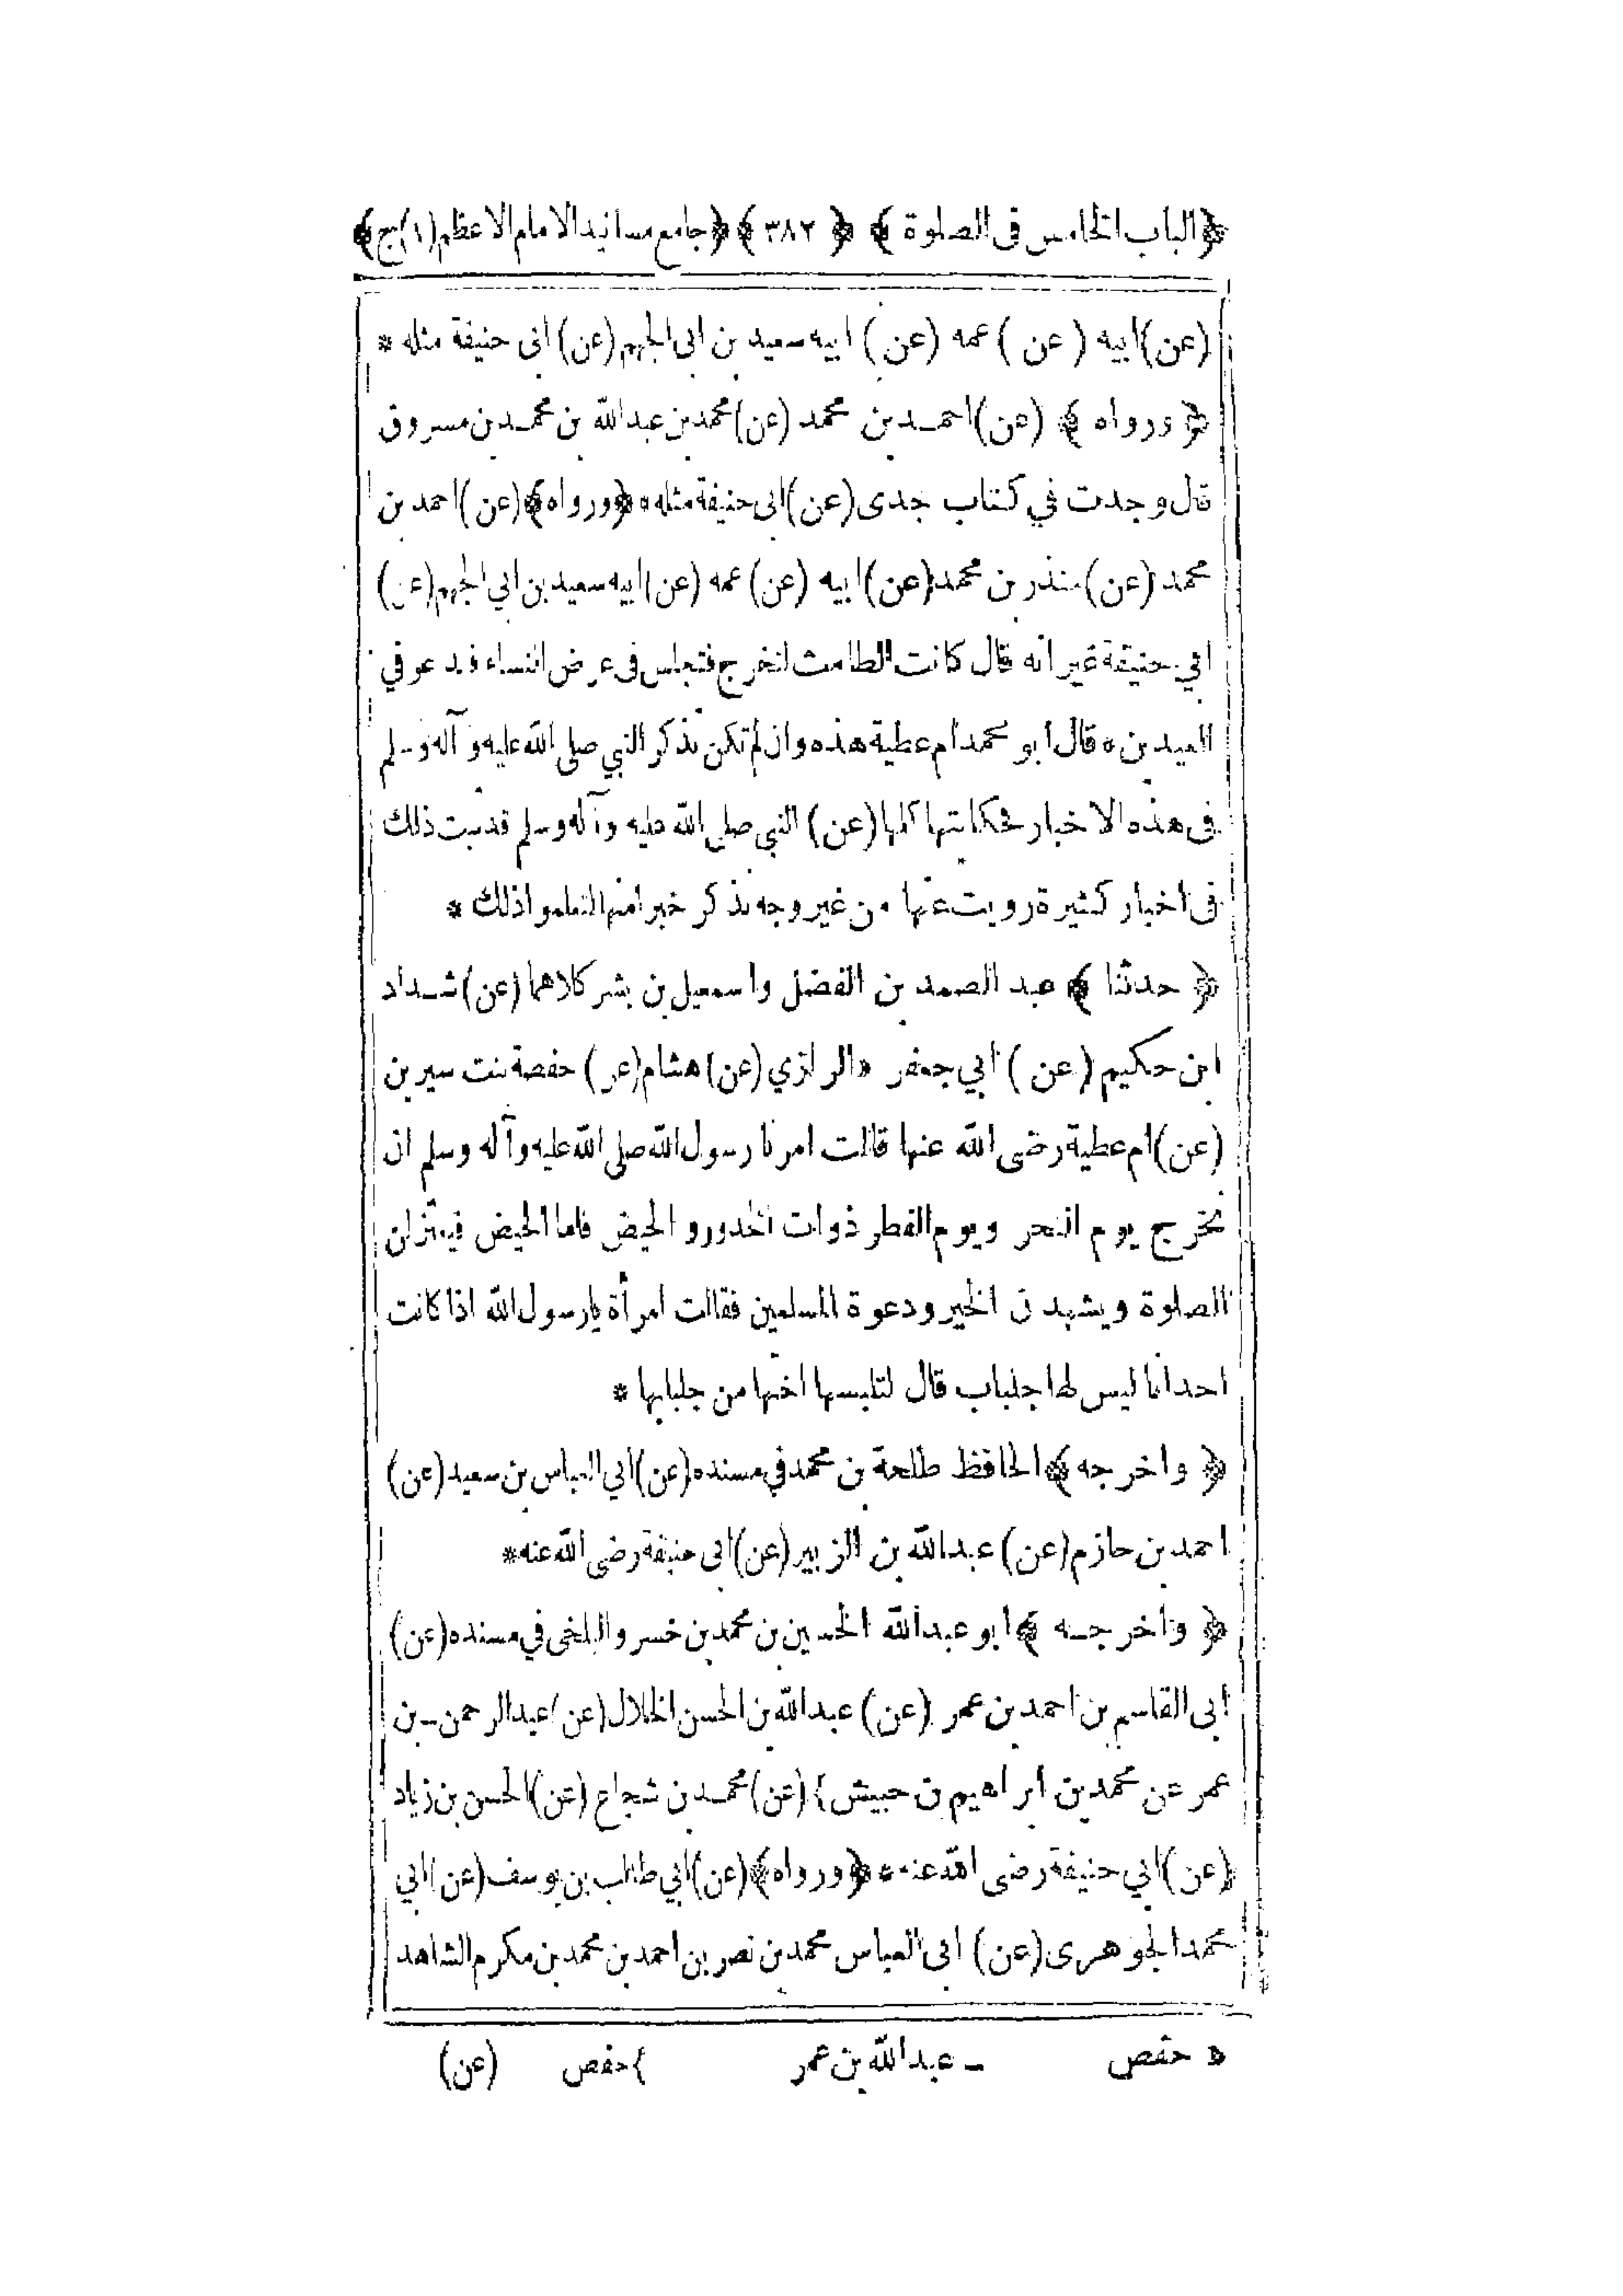 ﴿الباب الخامس فى الصلوة﴾ ﴿٣٨٢﴾ ﴿جامع مسانيد الامام الاعظم (١) ج﴾
(عن) ابيه (عن) عمه (عن) ابيه سعيد بن ابى الجهم (عن) ابى حنيفة مثله *
﴿ورواه﴾ (عن) احمد بن محمد (عن) محمد بن عبد الله بن محمد بن مسروق
قال وجدت في كتاب جدى (عن) ابى حنيفة مثله * ﴿ورواه﴾ (عن) احمد بن
محمد (عن) منذر بن محمد (عن) ابيه (عن) عمه (عن) ابيه سعيد بن ابي الجهم (عن)
ابي حنيفة غير انه قال كانت الطامث لتخرج فتجلس فى عرض النساء فتدعو في
العيدين * قال ابو محمد ام عطية هذه وان لم تكن تذكر النبي صلى الله عليه وآله وسلم
فى هذه الاخبار فحكايتها كلها (عن) النبي صلى الله عليه وآله وسلم قد ثبت ذلك
فى اخبار كثيرة رويت عنها من غير وجه نذكر خبرا منها لتعلموا ذلك *
﴿حدثنا﴾ عبد الصمد بن الفضل واسمعيل بن بشر كلاهما (عن) شداد
ابن حكيم (عن) ابي جعفر ه الرازي (عن) هشام (عن) حفصة بنت سيرين
(عن) ام عطية رضى الله عنها قالت امرنا رسول الله صلى الله عليه وآله وسلم ان
نخرج يوم النحر ويوم الفطر ذوات الخدور و الحيض فاما الحيض فيعتزلن
الصلوة ويشهدن الخير ودعوة المسلمين فقالت امرأة يا رسول الله اذا كانت
احدانا ليس لها جلباب قال لتلبسها اختها من جلبابها *
﴿واخرجه﴾ الحافظ طلحة بن محمد في مسنده (عن) ابي العباس بن سعيد (عن)
احمد بن حازم (عن) عبد الله بن الزبير (عن) ابى حنيفة رضى الله عنه *
﴿واخرجه﴾ ابو عبد الله الحسين بن محمد بن خسرو البلخى في مسنده (عن)
ابى القاسم بن احمد بن عمر (عن) عبد الله بن الحسن الخلال (عن) عبد الرحمن ـ بن
عمر عن محمد بن ابراهيم بن حبيش } (عن) محمد بن شجاع (عن) الحسن بن زياد
(عن) ابي حنيفة رضى الله عنه * ﴿ورواه﴾ (عن) ابي طالب بن يوسف (عن) ابي
محمد الجوهرى (عن) ابى العباس محمد بن نصر بن احمد بن محمد بن مكرم الشاهد
ه حفص ـ عبد الله بن عمر } حفص (عن)